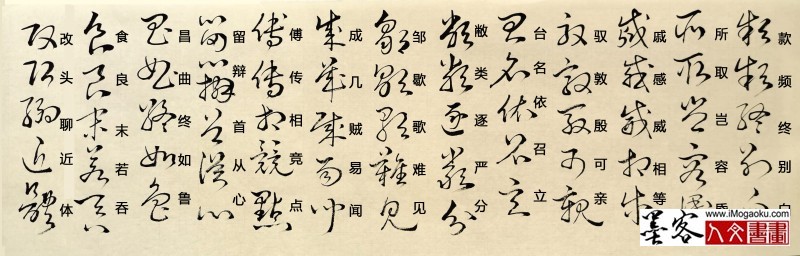 款频终别白
所取岂容昏
戚感威相等
驭敦殷可亲
台名依召立
敝类逐严分
邹歇歌难见
成几贼易闻
傅传相竞点
留辩首从心
昌曲终如鲁
食良末若吞
改头聊近体
www.iMogaoku.com
墨客
人文書畫